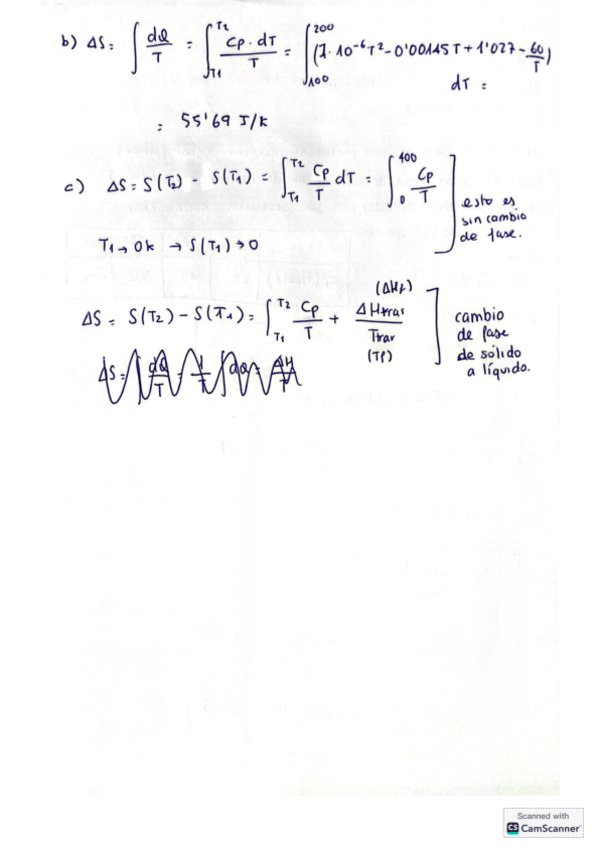 b) ΔS = ∫ dQ/T = ∫_{T1}^{T2} Cp·dT/T = ∫_{100}^{200} (7·10⁻⁶T² - 0'00145T + 1'027 - 60/T) dT =
= 55'69 J/K
c) ΔS = S(T2) - S(T1) = ∫_{T1}^{T2} Cp/T dT = ∫_{0}^{400} Cp/T ] esto es sin cambio de fase.
T1 → 0K → S(T1) → 0
ΔS = S(T2) - S(T1) = ∫_{T1}^{T2} Cp/T + ΔHtras (ΔHf) / Ttrar (Tf) ] cambio de fase de sólido a líquido.
Scanned with
CS CamScanner